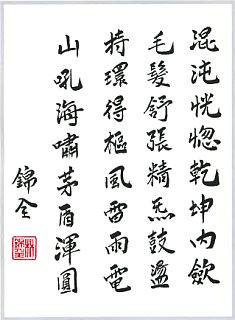 混沌恍惚乾坤內斂
毛髮舒張精炁鼓盪
持環得樞風雷雨電
山吼海嘯茅盾渾圓
錦全